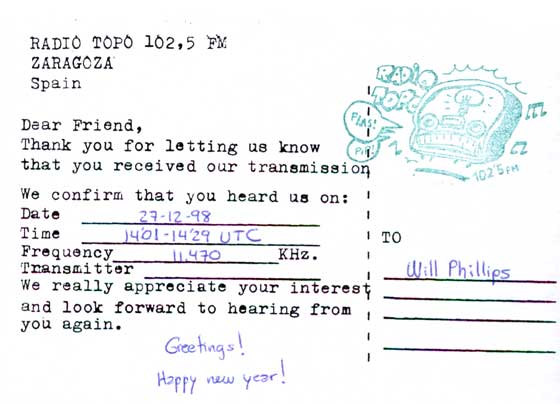 RADIO TOPO 102,5 FM
ZARAGOZA
Spain
RADIO
TOPO
FLAS!
102'5 FM
Dear Friend,
Thank you for letting us know
that you received our transmission
We confirm that you heard us on:
Date 27-12-98
Time 14'01-14'29 UTC
Frequency 11,470 KHz.
Transmitter
We really appreciate your interest
and look forward to hearing from
you again.
Greetings!
Happy new year!
TO
Will Phillips